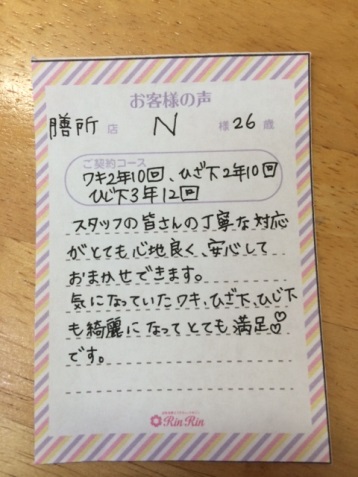 お客様の声
膳所 店 N 様 26 歳
ご契約コース
ワキ2年10回、ひざ下2年10回
ひじ下3年12回
スタッフの皆さんの丁寧な対応
がとても心地良く、安心して
おまかせできます。
気になっていたワキ、ひざ下、ひじ下
も綺麗になってとても満足♡
です。
RinRin